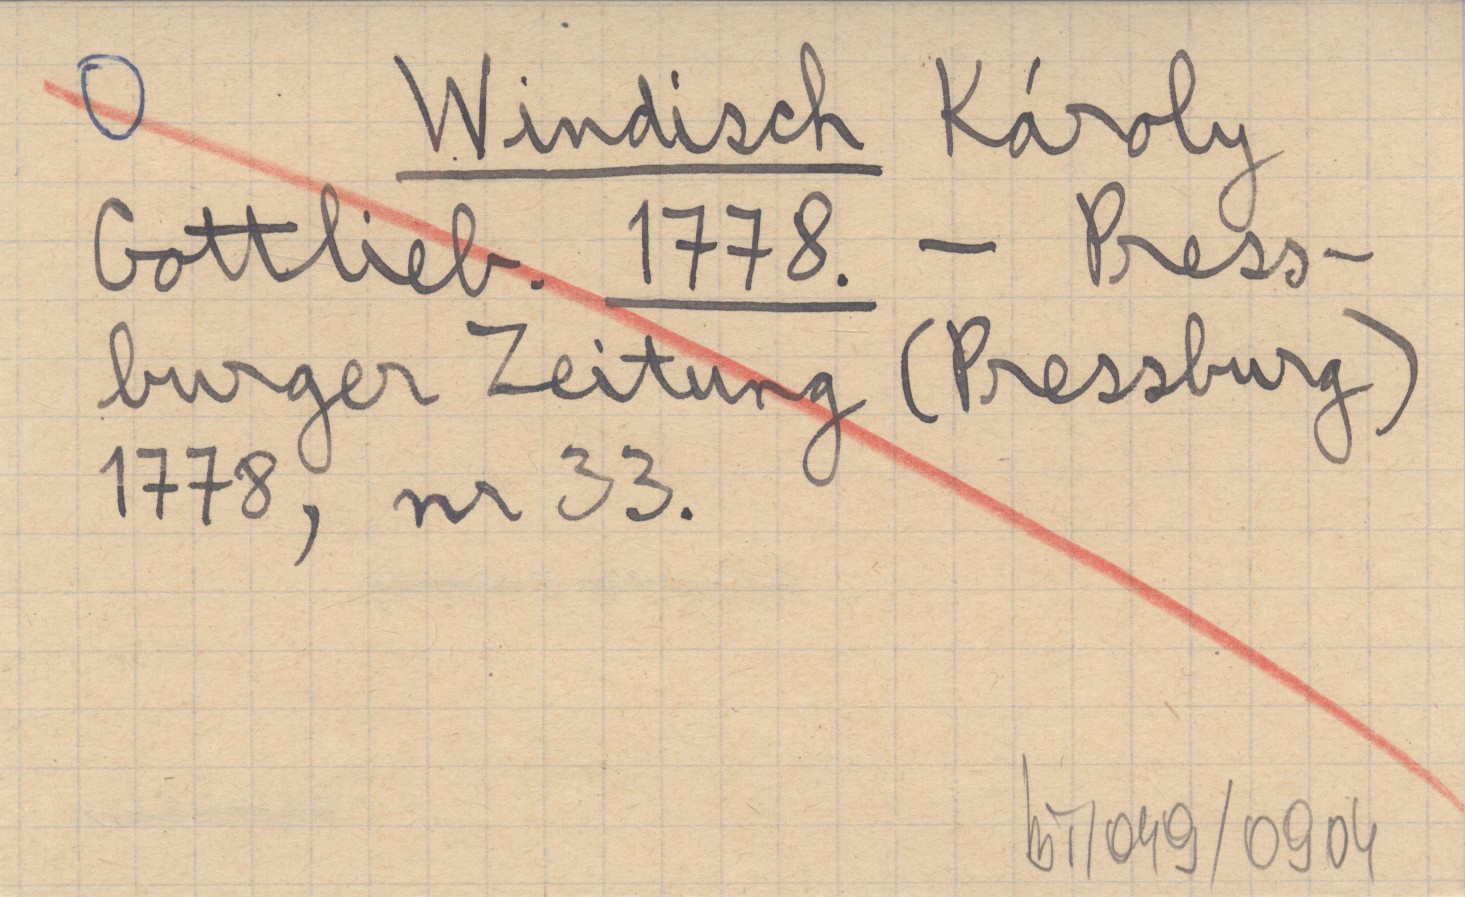 Windisch Károly
Gottlieb. 1778. – Press-
burger Zeitung (Pressburg)
1778, nr 33.
bT/049/0904